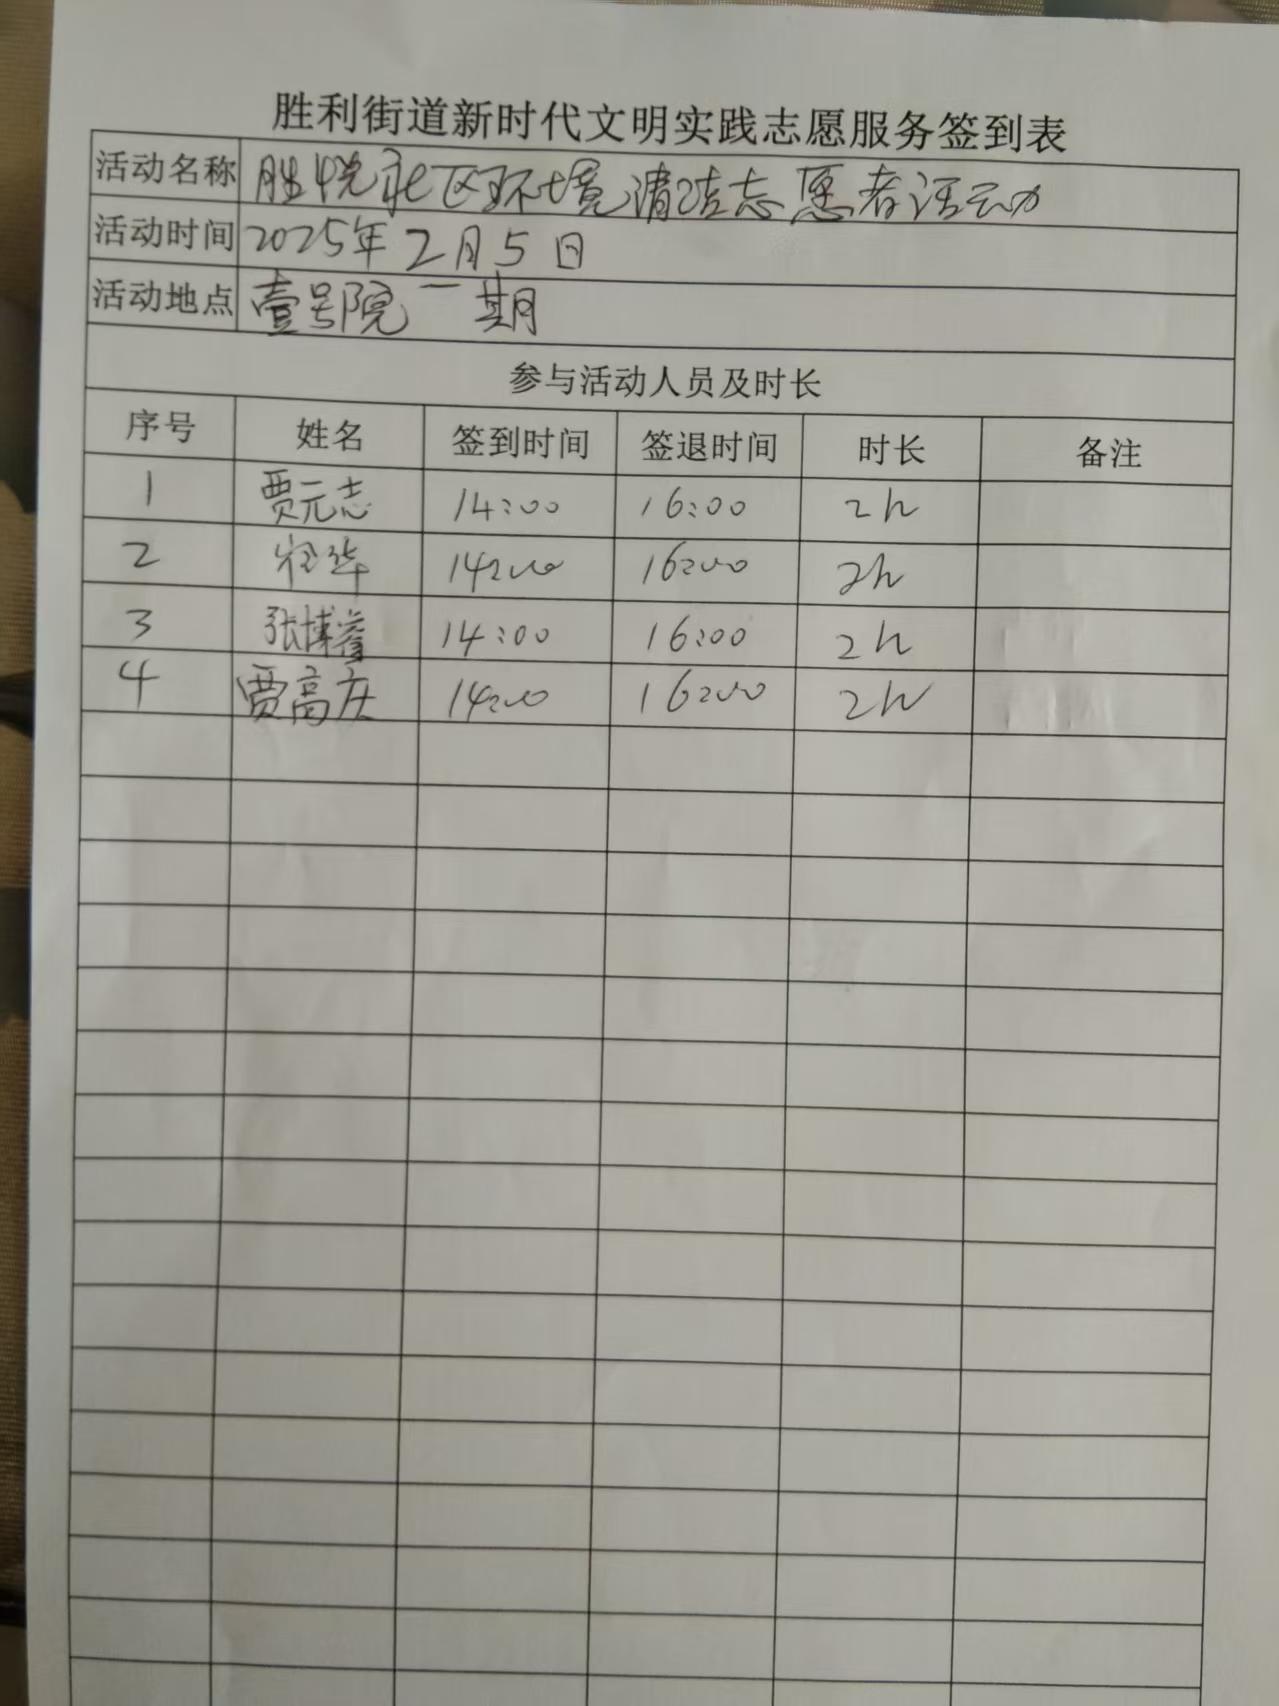 胜利街道新时代文明实践志愿服务签到表
活动名称 胜悦社区环境清洁志愿者活动
活动时间 2025年2月5日
活动地点 壹号院一期
参与活动人员及时长
序号 姓名 签到时间 签退时间 时长 备注
1 贾元志 14:00 16:00 2h
2 华 14:00 16:00 2h
3 张博睿 14:00 16:00 2h
4 贾高庆 14:00 16:00 2h